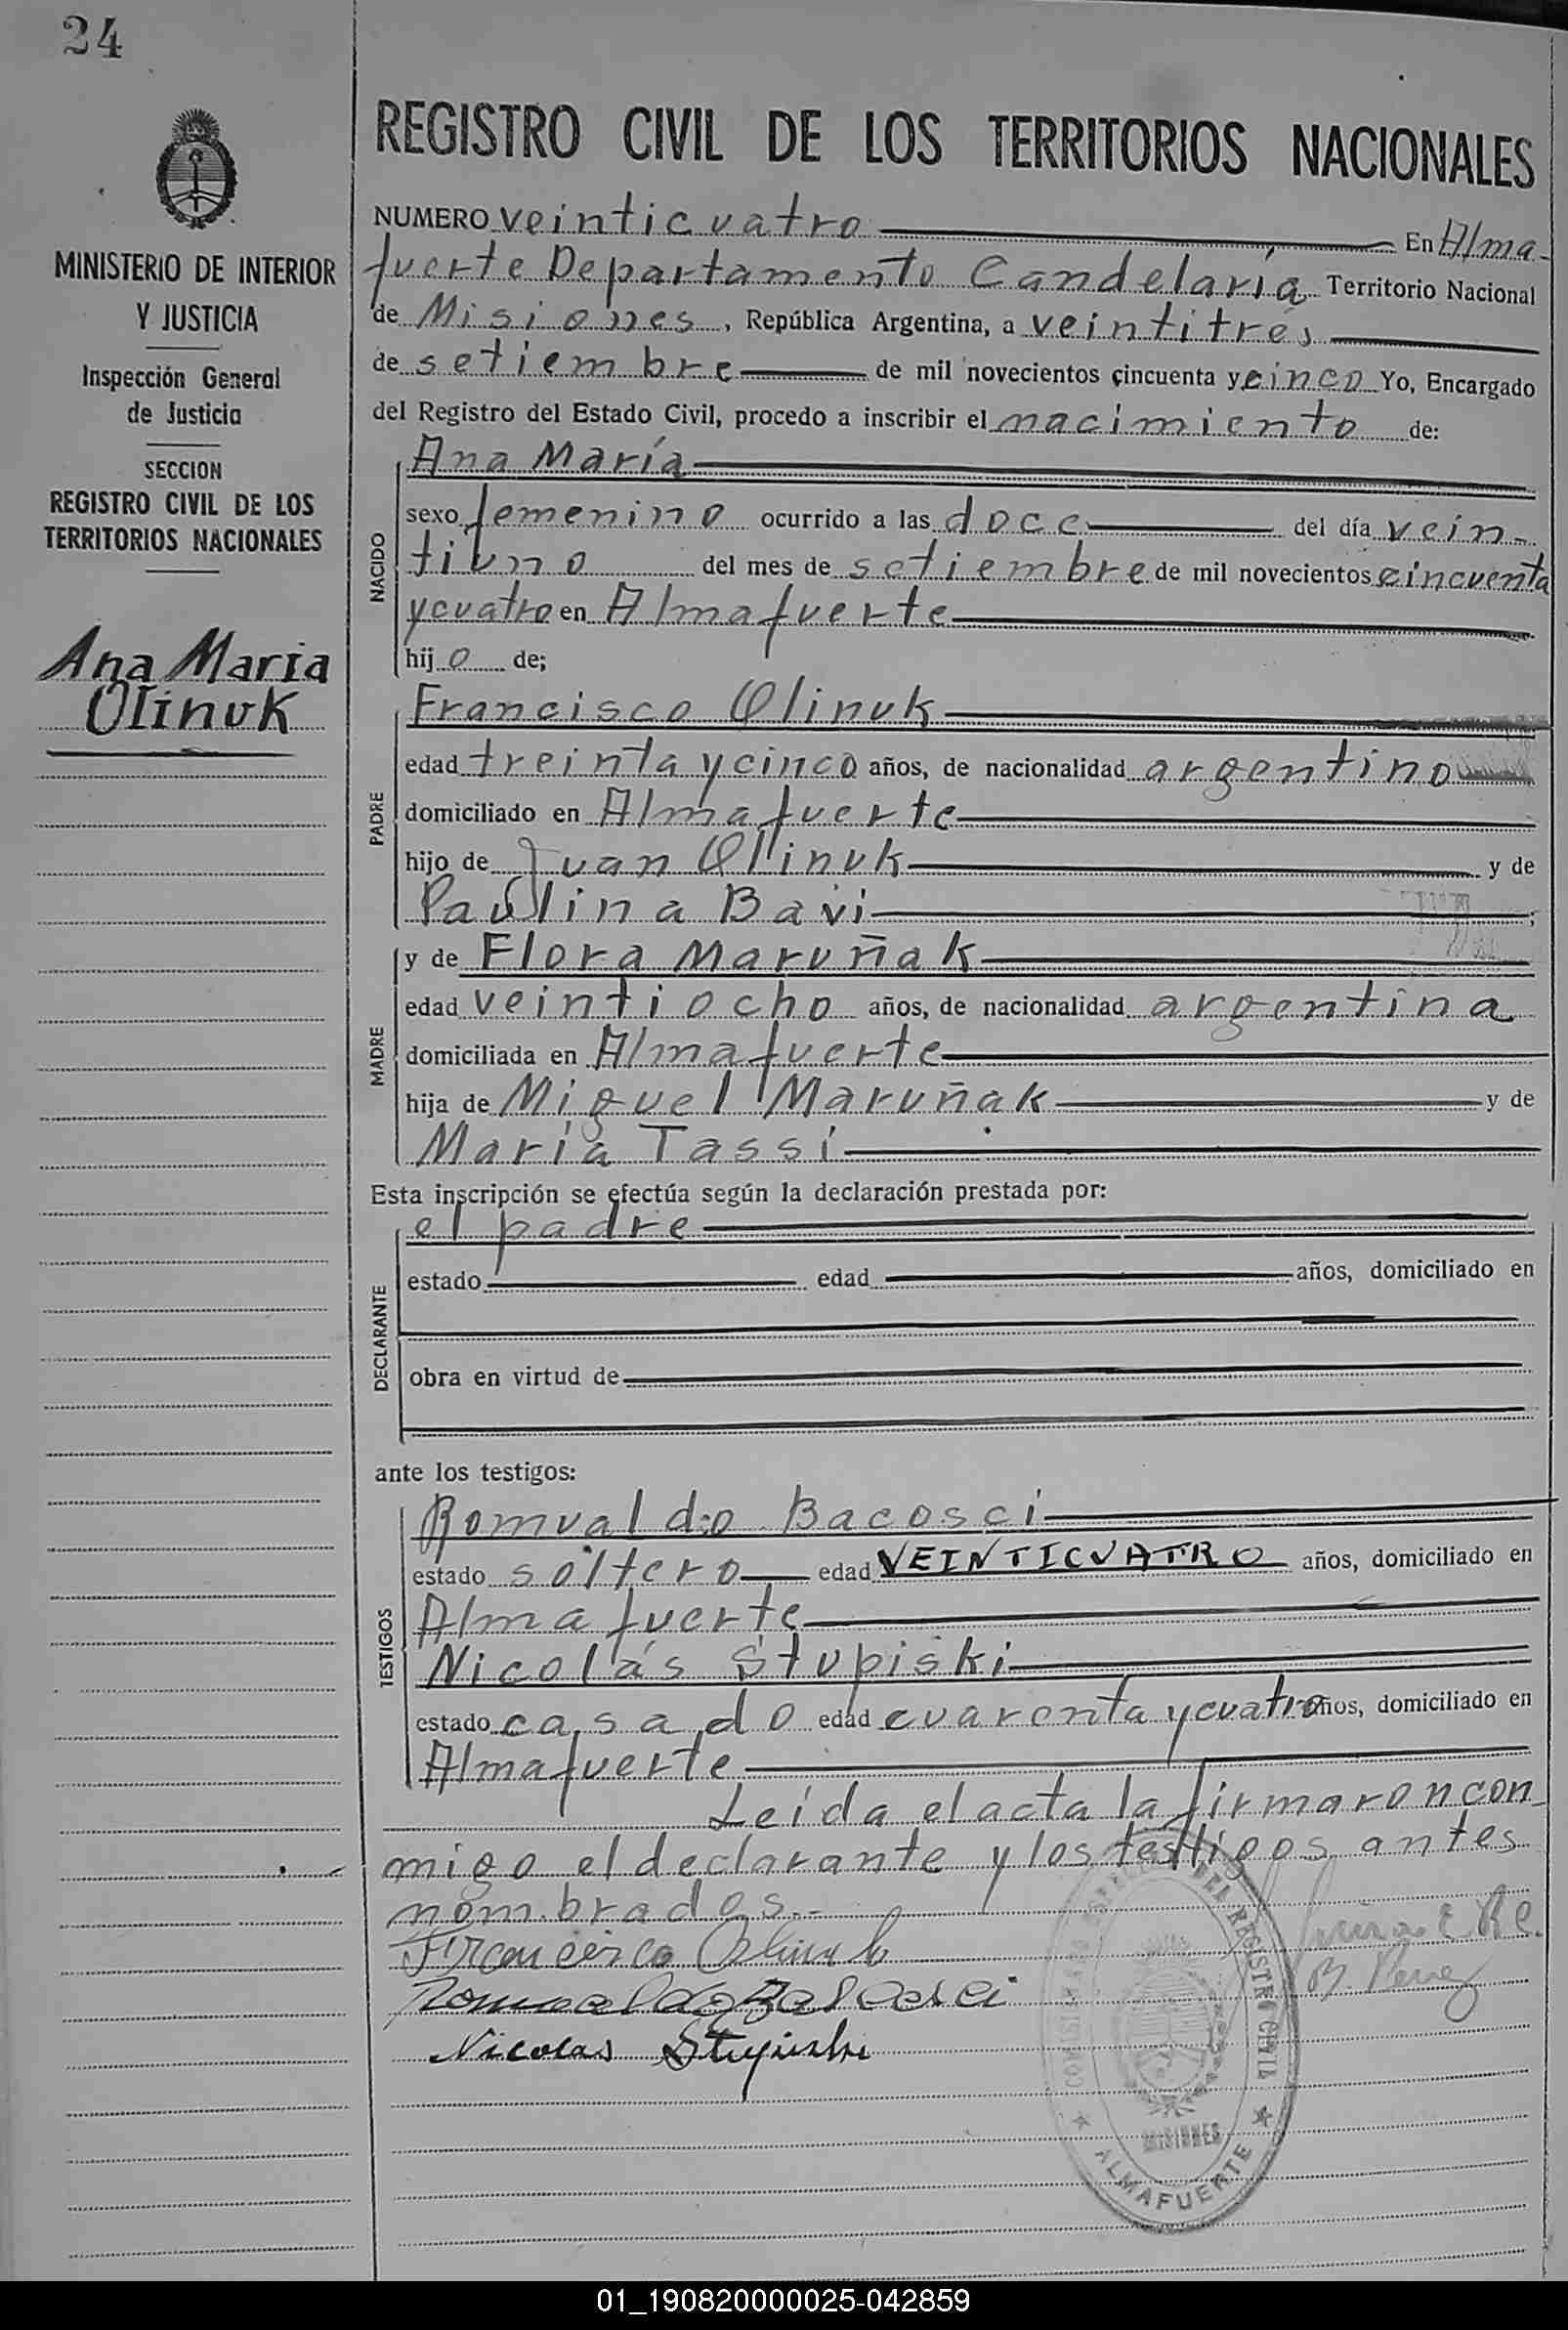 24
MINISTERIO DE INTERIOR
Y JUSTICIA
Inspección General
de Justicia
SECCION
REGISTRO CIVIL DE LOS
TERRITORIOS NACIONALES
Ana Maria
Olinuk
REGISTRO CIVIL DE LOS TERRITORIOS NACIONALES
NUMERO veinticuatro En Alma-
fuerte Departamento Candelaria Territorio Nacional
de Misiones, República Argentina, a veintitrés
de setiembre de mil novecientos cincuenta y cinco Yo, Encargado
del Registro del Estado Civil, procedo a inscribir el nacimiento de:
NACIDO
Ana María
sexo femenino ocurrido a las doce del día vein-
tiuno del mes de setiembre de mil novecientos cincuenta
y cuatro en Almafuerte
hijo de;
PADRE
Francisco Olinuk
edad treinta y cinco años, de nacionalidad argentino
domiciliado en Almafuerte
hijo de Juan Olinuk y de
Paulina Bavi;
MADRE
y de Flora Maruñak
edad veintiocho años, de nacionalidad argentina
domiciliada en Almafuerte
hija de Miguel Maruñak y de
María Tassi
Esta inscripción se efectúa según la declaración prestada por:
DECLARANTE
el padre
estado edad años, domiciliado en
obra en virtud de
ante los testigos:
TESTIGOS
Romualdo Bacosci
estado soltero edad VEINTICUATRO años, domiciliado en
Almafuerte
Nicolás Stupiski
estado casado edad cuarenta y cuatro años, domiciliado en
Almafuerte
Leída el acta la firmaron con
migo el declarante y los testigos antes
nombrados.-
Francisco Olinuk
Romualdo Bacosci
Nicolas Stupiski
B. Perez
DEL REGISTRO CIVIL
MISIONES
ALMAFUERTE
01_190820000025-042859